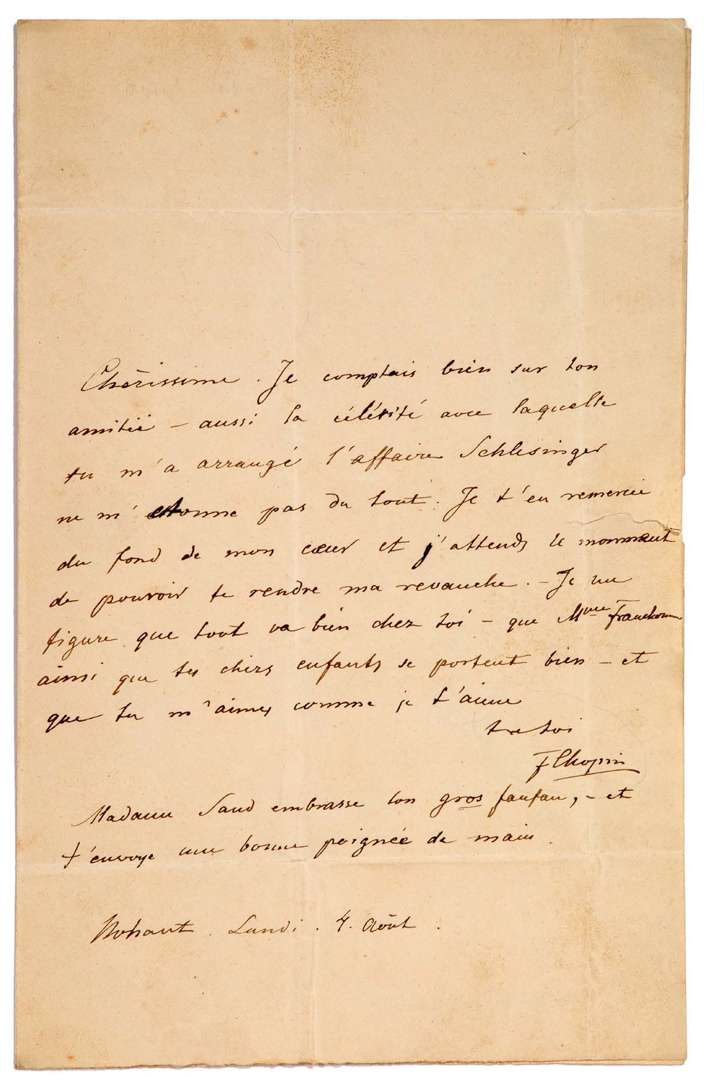 Chérissime. Je comptais bien sur ton
amitié – aussi la célérité avec laquelle
tu m'a arrangé l'affaire Schlesinger
ne m'étonne pas du tout. Je t'en remercie
du fond de mon cœur et j'attends le moment
de pouvoir te rendre ma revanche. – Je me
figure que tout va bien chez toi – que Mme Franchomme
ainsi que tes chers enfants se portent bien – et
que tu m'aimes comme je t'aime
FChopin
Madame Sand embrasse ton gros fanfan, – et
t'envoye une bonne poignée de main.
Nohant. Lundi. 4. Août.